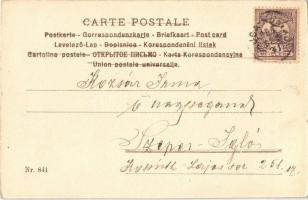 CARTE POSTALE
Postkarte - Correspondenzkarte - Briefkaart - Post card
Levelező-Lap - Dopisnica - Korespondenční lístek
Cartolina postale - ОТКРЫТОЕ ПИСЬМО - Karta Korespondencyjna
Union postale universelle.
Kozsár Irma
ő nagyságának
Szepes-Igló
Kossuth Lajos sor 251
Nr. 841